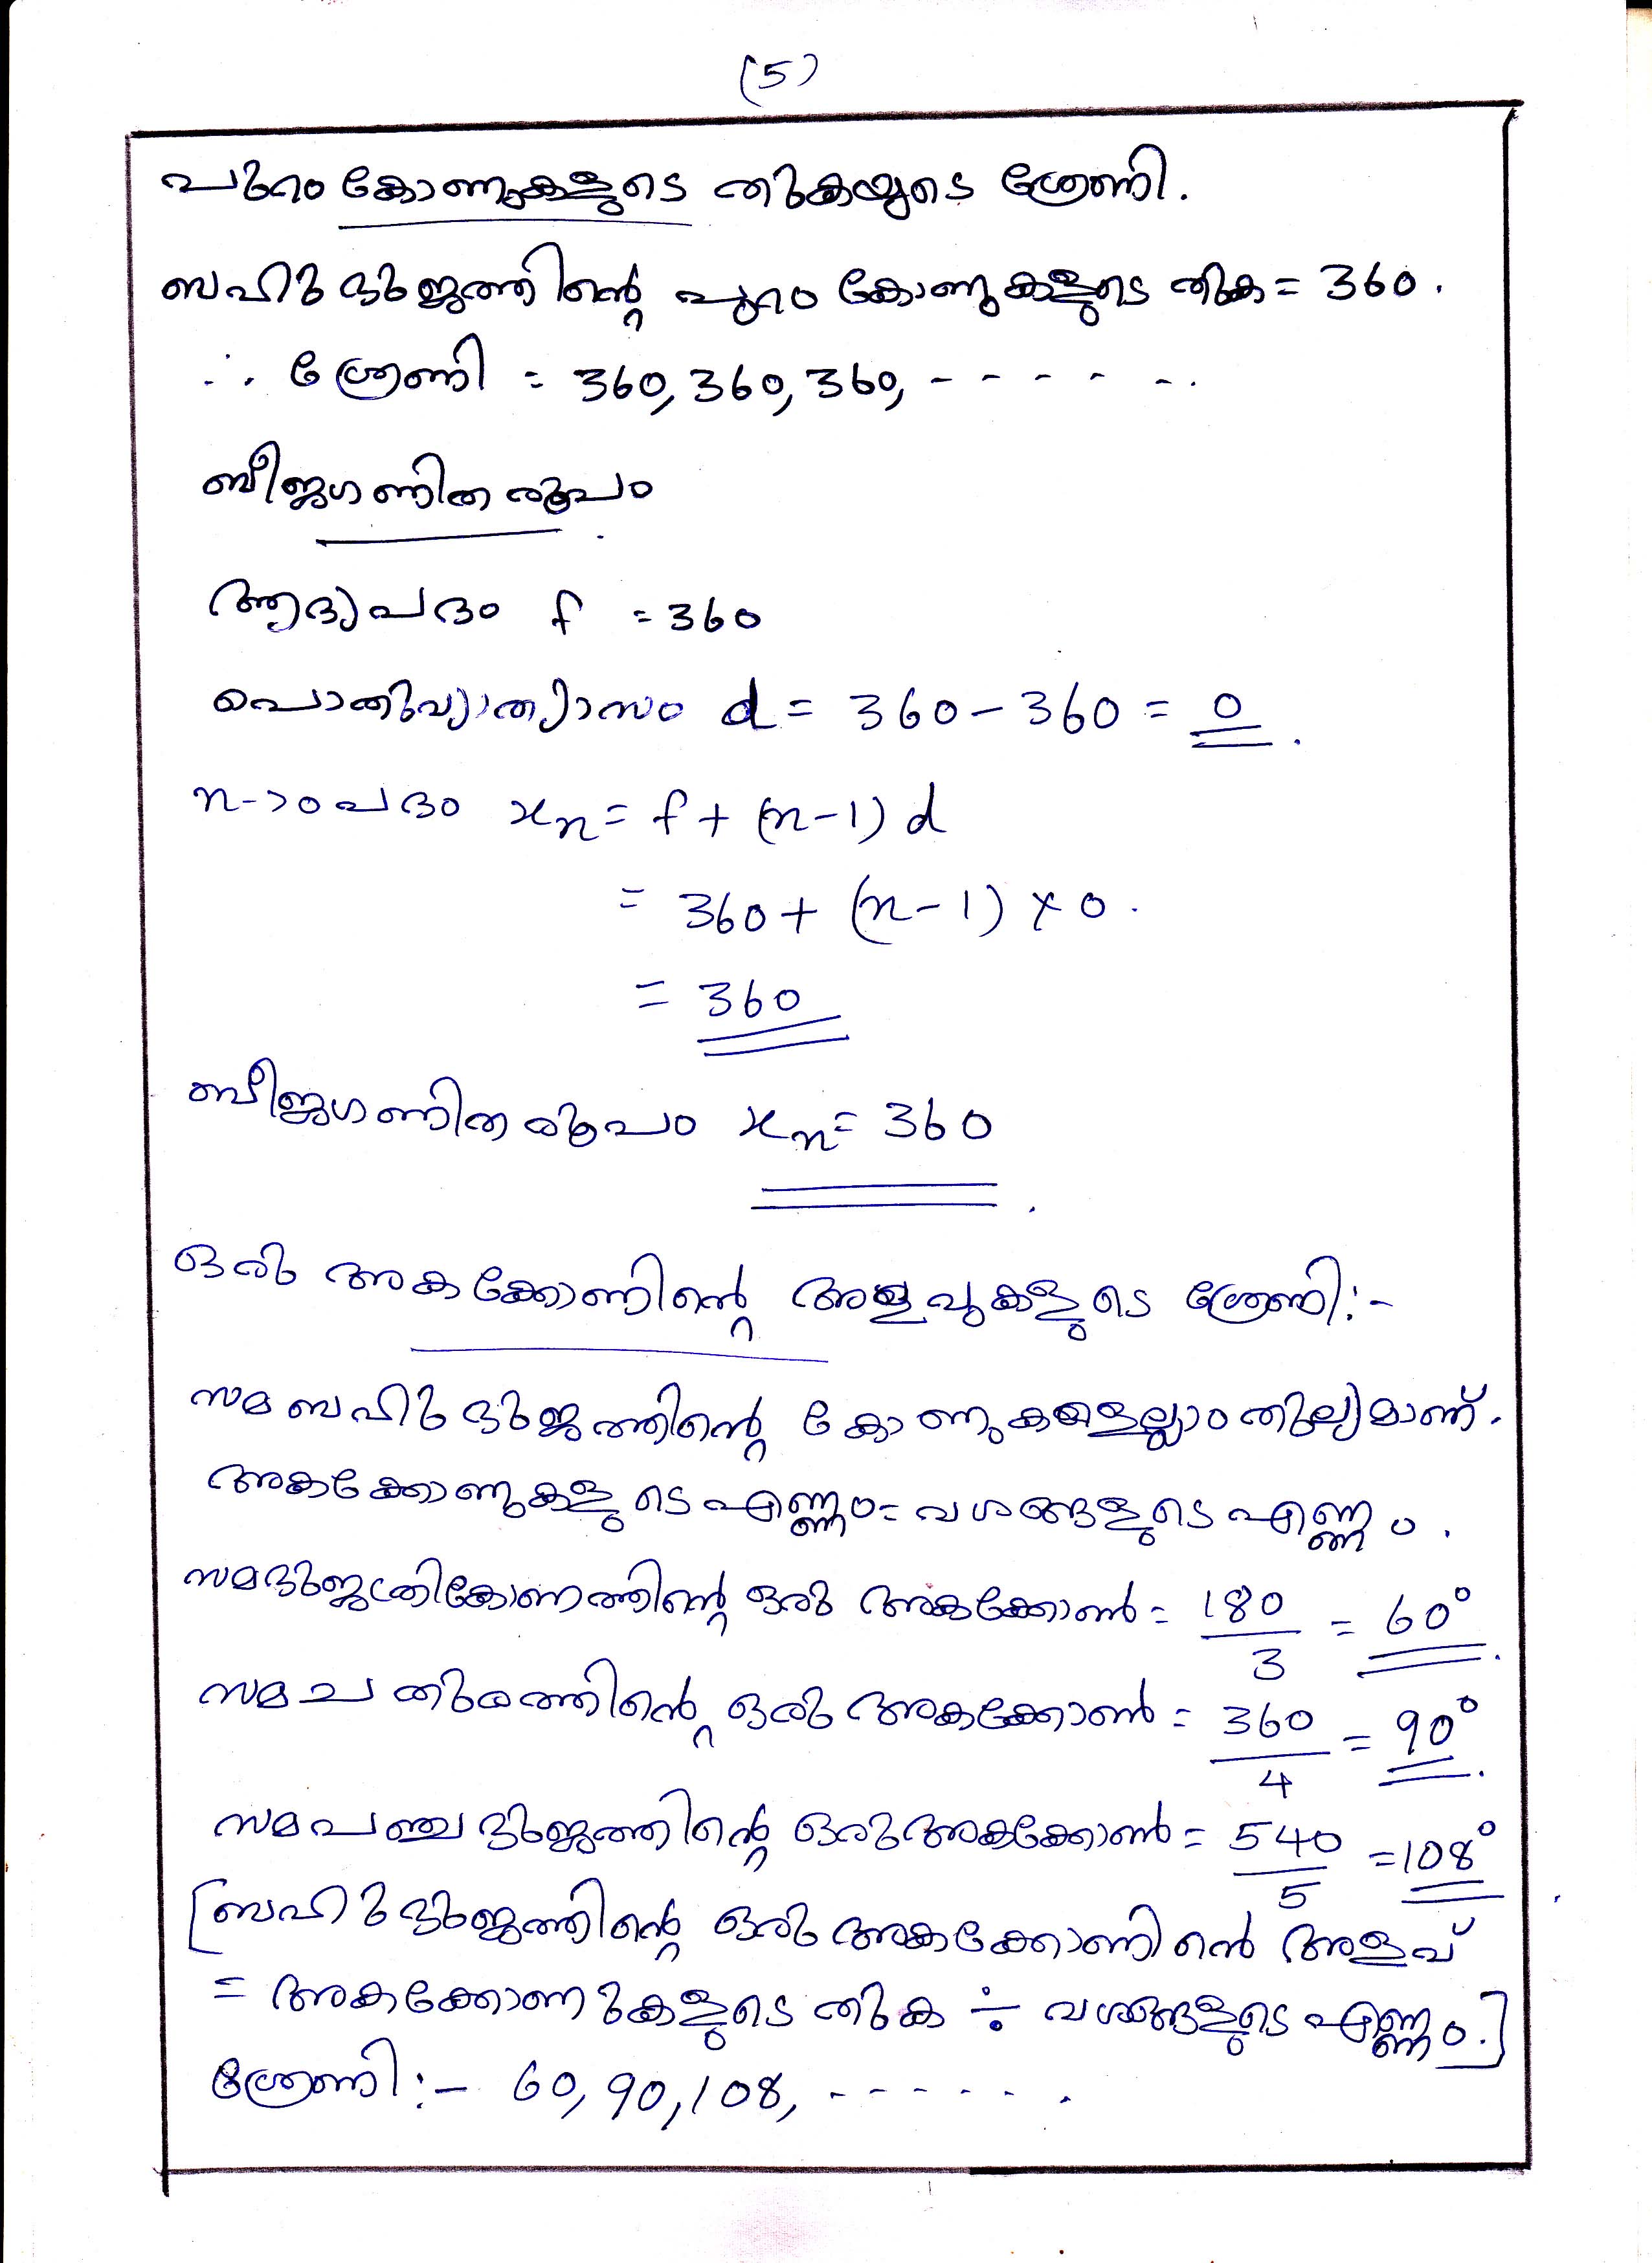 (5)
പുറം കോണുകളുടെ തുകയുടെ ശ്രേണി.
ബഹുഭുജത്തിന്റെ പുറം കോണുകളുടെ തുക = 360.
∴ ശ്രേണി = 360, 360, 360, - - - - - -.
ബീജഗണിത രൂപം
ആദ്യപദം f = 360
പൊതുവ്യത്യാസം d = 360 - 360 = 0.
n-ാം പദം xn = f + (n-1) d
= 360 + (n-1) × 0.
= 360
ബീജഗണിത രൂപം xn = 360.
ഒരു അകക്കോണിന്റെ അളവുകളുടെ ശ്രേണി :-
സമബഹുഭുജത്തിന്റെ കോണുകളെല്ലാം തുല്യമാണ്.
അകക്കോണുകളുടെ എണ്ണം = വശങ്ങളുടെ എണ്ണം.
സമഭുജത്രികോണത്തിന്റെ ഒരു അകക്കോൺ = 180/3 = 60°.
സമചതുരത്തിന്റെ ഒരു അകക്കോൺ = 360/4 = 90°.
സമപഞ്ചഭുജത്തിന്റെ ഒരു അകക്കോൺ = 540/5 = 108°.
[ബഹുഭുജത്തിന്റെ ഒരു അകക്കോണിൻ അളവ്
= അകക്കോണുകളുടെ തുക ÷ വശങ്ങളുടെ എണ്ണം.]
ശ്രേണി :- 60, 90, 108, - - - - - -.